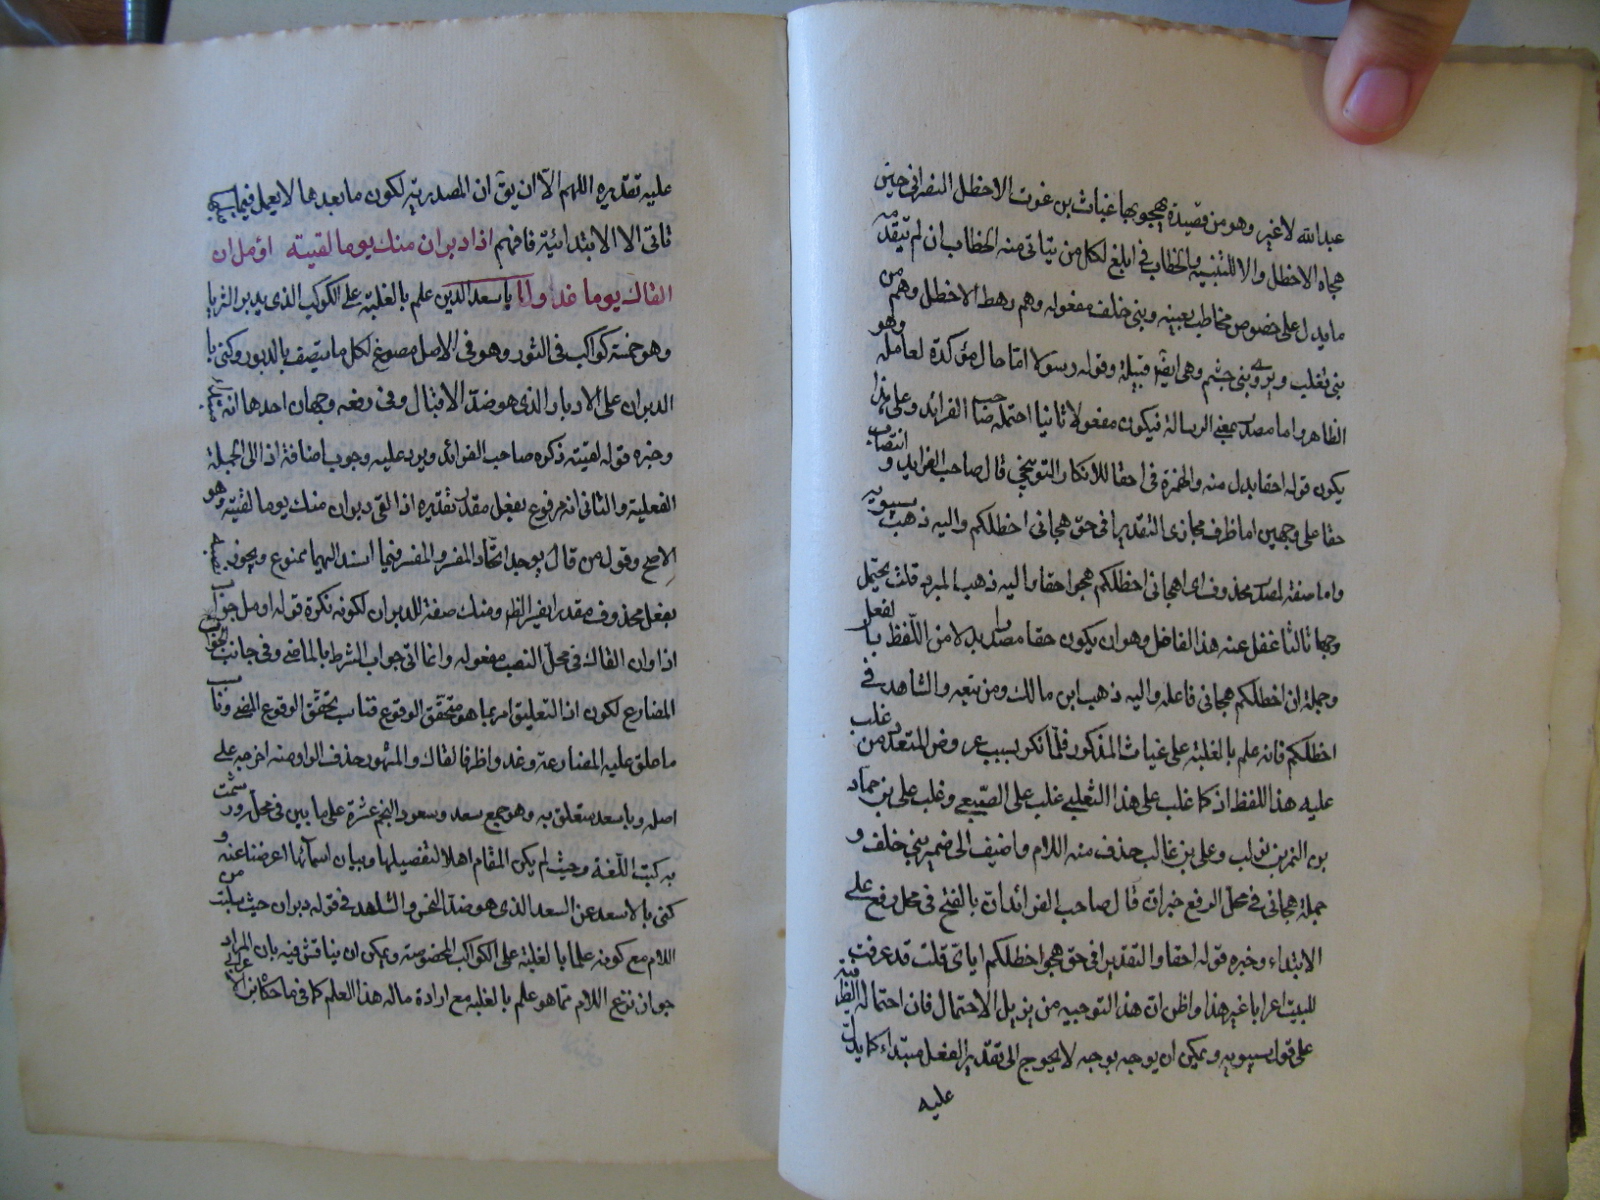 عبدالله لا غير وهو من قصيدة يهجو بها غياث بن غوث الاخطل النصراني حين
هجاه الاخطل والا للتنبيه والخطاب في ابلغ لكل من يتاتى منه الخطاب ان لم يتقدمه
ما يدل على خصوص مخاطب بعينه وبني خلف مفعوله وهم رهط الاخطل وهم من
بني تغلب ويروى بني جشم وهي ايضا قبيلة وقوله رسولا اما حال مؤكدة لعامله وهو
الظاهر واما مصدر بمعنى الرسالة فيكون مفعولا ثانيا احتمله صاحب الفرائد وعلى هذا
يكون قوله احقا بدل منه والهمزة في احقا للانكار التوبيخي قال صاحب الفرايد و انتصاب
حقا على وجهين اما ظرف مجازي التقدير افي حق هجاني اخطلكم واليه ذهب سيبويه
واما صفة لمصدر محذوف اي اهجاني اخطلكم هجوا حقا واليه ذهب المبرد قلت يحتمل
وجها ثالثا غفل عنه هذا الفاضل وهو ان يكون حقا مصدرا بدلا من اللفظ بالفعل
وجملة ان اخطلكم هجاني فاعله واليه ذهب ابن مالك ومن تبعه والشاهد في
اخطلكم فانه علم بالغلبة على غياث المذكور فلما نكر بسبب عروض المتعدد من غلب
عليه هذا اللفظ اذ كما غلب على هذا التغلبي غلب على الضبعي وغلب على بن حماد
بن النمر بن تولب وعلى بن غالب حذف منه اللام واضيف الى ضمير بني خلف و
جملة هجاني في محل الرفع خبر ان قال صاحب الفرائد ان بالفتح في محل رفع على
الابتداء وخبره قوله احقا والتقدير افي حق هجو اخطلكم اياي قلت قد عرفت
للبيت اعرابا غير هذا واظن ان هذا التوجيه من يزيل الاحتمال فان احتماله الظرفية
على قول سيبويه ويمكن ان يوجه بوجه لا يحوج الى تقدير الفعل مبتداء كما يدل
عليه
عليه تقديره اللهم الا ان يق ان المصدرية لكون ما بعدها لا يعمل فيما
تاتي الا الابتدائية فافهم اذا دبران منك يوما لقيته اؤمل ان
القاك يوما غدوا با سعد الدين علم بالغلبة على الكوكب الذي يدبر الثريا
وهو خمسة كواكب في الثور وهو في الاصل مصوغ لكل ما يتصف بالدبور وكنى با
الدبران على الادبار الذي هو ضد الاقبال وفي رفعه وجهان احدها انه
وخبره قوله لقيته ذكره صاحب الفرائد ويرد عليه وجوب اضافة اذا الى الجملة
الفعلية والثاني انه مرفوع بفعل مقدر تقديره اذا القى دبران منك يوما لقيته وهو
الاصح وقول من قال يوجد اتحاد المفسر والمفسر فيما اسند اليهما ممنوع ويجوز
بفعل محذوف مقدر يفسر الظ ومنك صفة للدبران لكونه نكرة قوله اومل جواب
اذا وان القاك في محل النصب مفعوله وانما اتى جواب الشرط بالماضي وفي جانب الجواب
المضارع لكون اذا لتعليق امر بما هو متحقق الوقوع فناسب تحقق الوقوع المضي وناسب
ما علق عليه المضارعة وغدوا ظرف القاك والمشهور حذف الواو منه اخرجه على
اصله وبا سعد متعلق به وهو جمع سعد وسعود النجم عشرة على ما بين في محل ورد
به كتب اللغة وحيث لم يكن المقام اهلا لتفصيلها وبيان اسمائها اعرضنا عنه و
كنى بالاسعد عن السعد الذي هو ضد النحس والشاهد في قوله دبران حيث سلبت من
اللام مع كونه علما بالغلبة على الكواكب المخصوصة ويمكن ان يناقش فيه بان المراد
جواز نزع اللام مما هو علم بالغلبه مع ارادة ماله هذا العلم كما في ما حكاه ابن الاعرابي